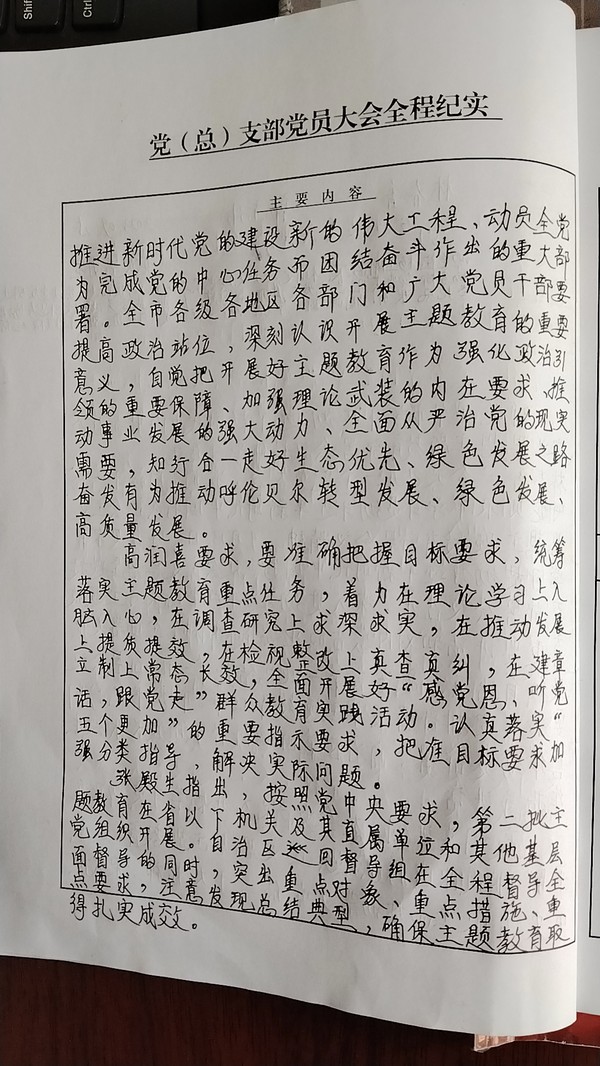 Shift
Ctrl
党（总）支部党员大会全程纪实
主要内容
推进新时代党的建设新的伟大工程、动员全党
为完成党的中心任务而团结奋斗作出的重大部
署。全市各级各地区各部门和广大党员干部要
提高政治站位，深刻认识开展主题教育的重要
意义，自觉把开展好主题教育作为强化政治引
领的重要保障、加强理论武装的内在要求、推
动事业发展的强大动力、全面从严治党的现实
需要，知行合一走好生态优先、绿色发展之路
奋发有为推动呼伦贝尔转型发展、绿色发展、
高质量发展。
高润喜要求，要准确把握目标要求，统筹
落实主题教育重点任务，着力在理论学习上入
脑入心，在调查研究上求深求实，在推动发展
上提质提效，在检视整改上真查真纠，在建章
立制上常态长效，全面开展好“感党恩、听党
话，跟党走”群众教育实践活动。认真落实“
五个更加”的重要指示要求，把准目标要求加
强分类指导，解决实际问题。
张殿生指出，按照党中央要求，第二批主
题教育在省以下机关及其直属单位和其他基层
党组织开展。自治区巡回督导组在全程督导全
面督导的同时，突出重点对象、重点措施、重
点要求，注意发现总结典型，确保主题教育取
得扎实成效。